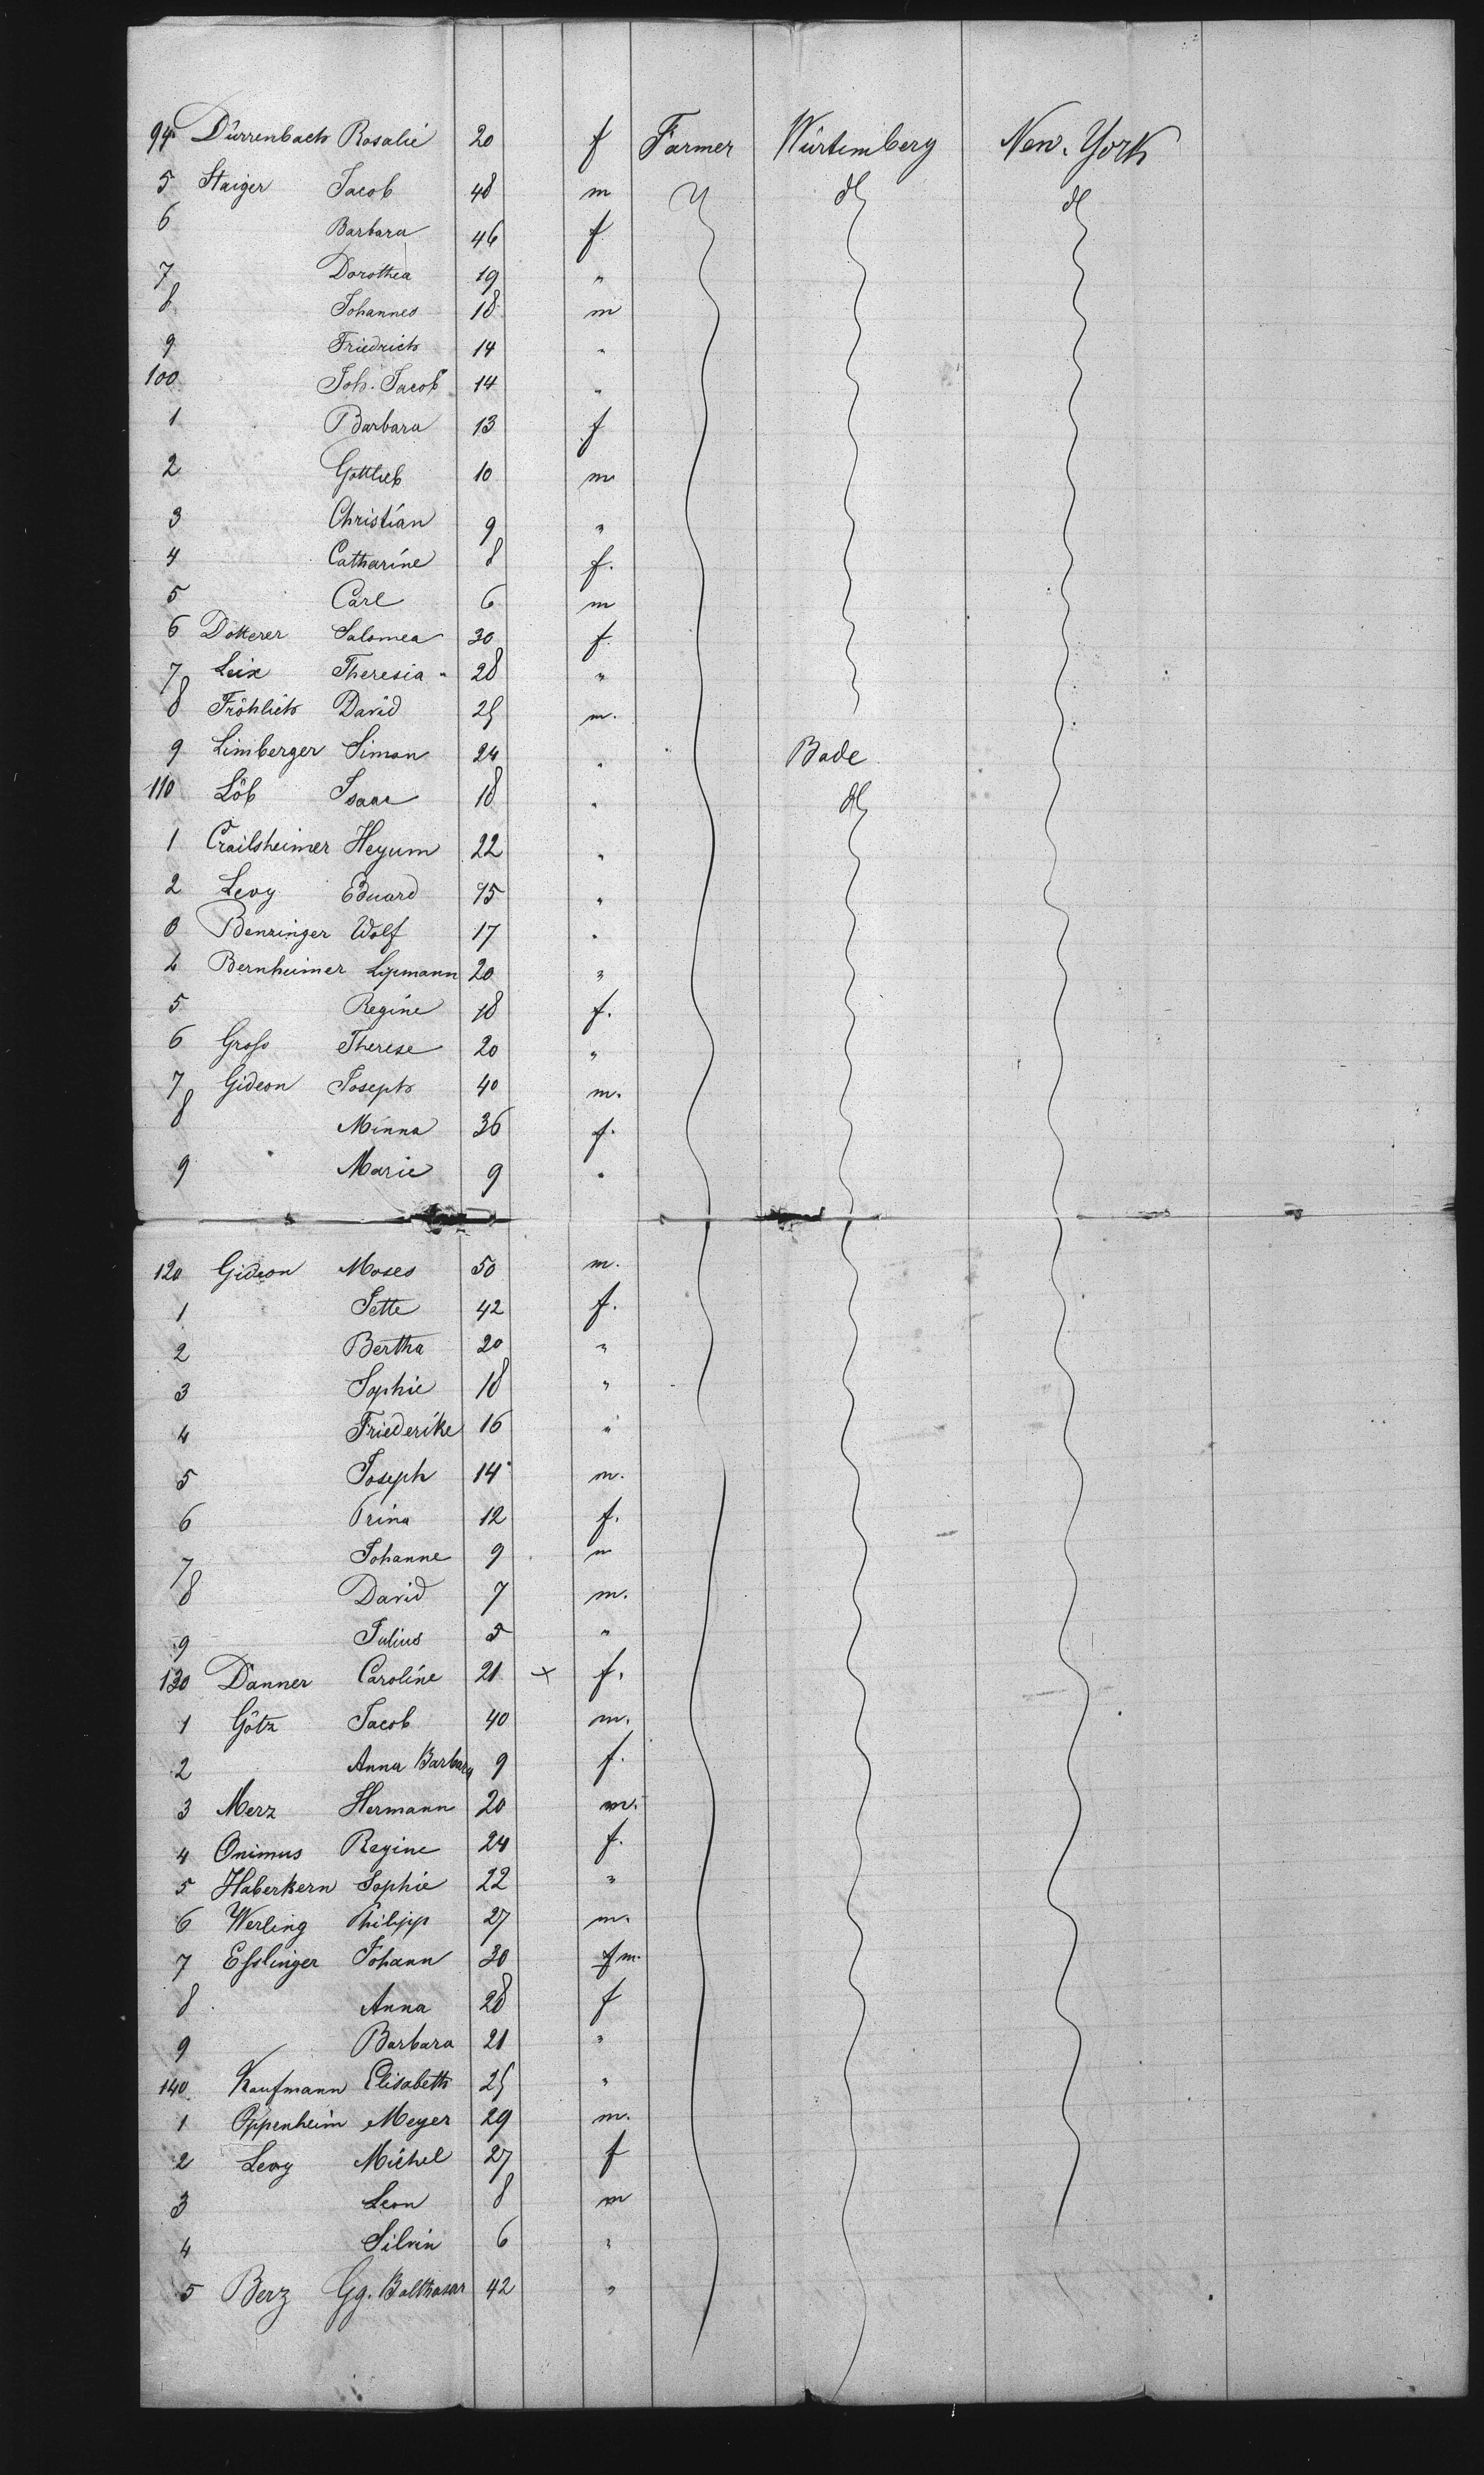 94 Dürrenbach Rosalie 20 f Farmer Würtemberg New-York
5 Staiger Jacob 48 m d d
6 Barbara 46 f
7 Dorothea 19 "
8 Johannes 18 m
9 Friedrich 14 "
100 Joh. Jacob 14 "
1 Barbara 13 f
2 Gottlieb 10 m
3 Christian 9 "
4 Catharine 8 f.
5 Carl 6 m
6 Dotterer Salomea 30 f.
7 Leix Theresia 28 "
8 Fröhlich David 25 m.
9 Limberger Simon 24 " Bade
110 Löb Isaac 18 " d
1 Crailsheimer Heyum 22 "
2 Levy Eduard 15 "
3 Benzinger Wolf 17 "
4 Bernheimer Lipmann 20 "
5 Regine 18 f.
6 Gross Therese 20 "
7 Gideon Joseph 40 m.
8 Minna 36 f.
9 Marie 9 "
120 Gideon Moses 50 m.
1 Jette 42 f.
2 Bertha 20 "
3 Sophie 18 "
4 Friederike 16 "
5 Joseph 14 m.
6 Trina 12 f.
7 Johanne 9 "
8 David 7 m.
9 Julius 5 "
130 Danner Caroline 21 x f.
1 Götz Jacob 40 m.
2 Anna Barbara 9 f.
3 Merz Hermann 20 m.
4 Onimus Regine 24 f.
5 Haberkern Sophie 22 "
6 Werling Philipp 27 m.
7 Esslinger Johann 30 f m.
8 Anna 28 f
9 Barbara 21 "
140 Kaufmann Elisabeth 25 "
1 Oppenheim Meyer 29 m.
2 Levy Michel 27 f
3 Leon 8 m
4 Silvin 6 "
5 Berz Gg. Balthasar 42 "